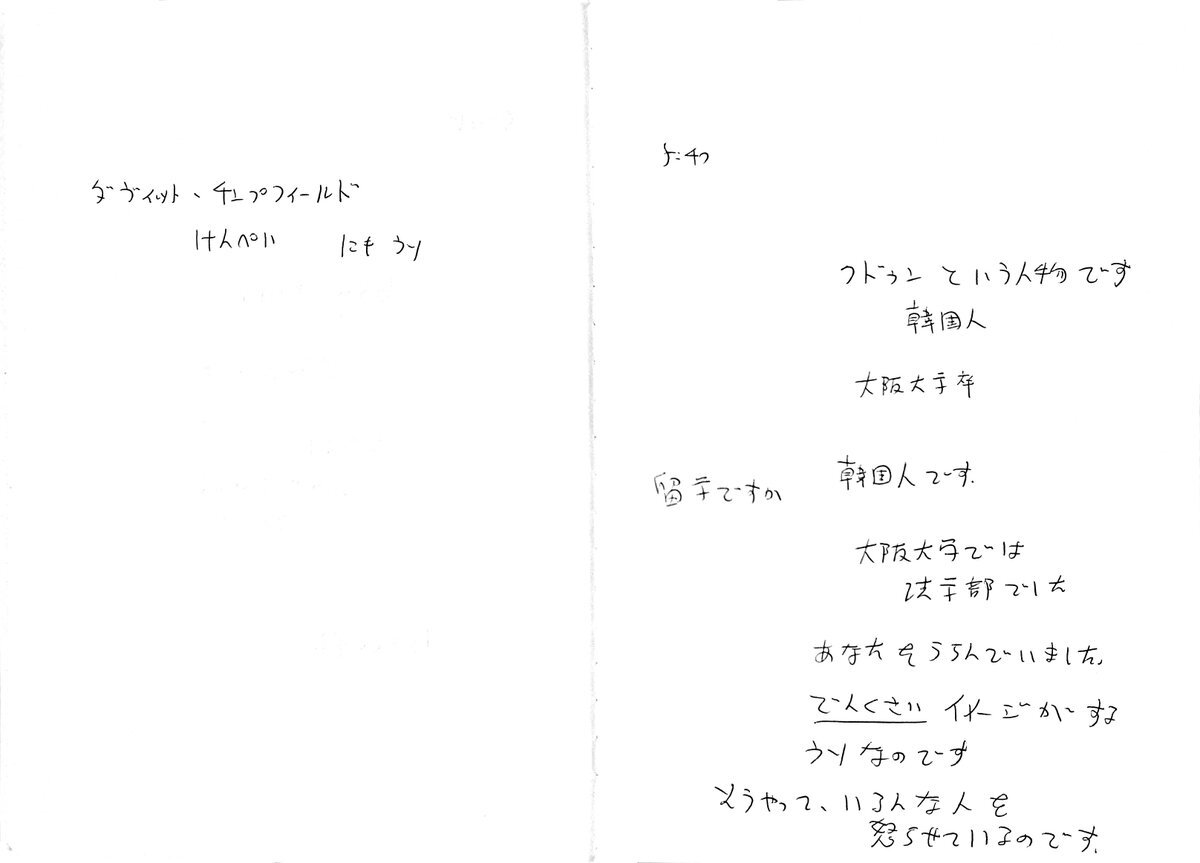 ダヴィット、チェプフィールド
けんぺい　にも　ウソ
フドゥン という人物です
韓国人
大阪大学卒
韓国人です。
留学ですか
大阪大学では
法学部でした
あなたをうらんでいました。
でんくさい イメージがする
ウソなのです
そうやって、いろんな人を
怒らせているのです。